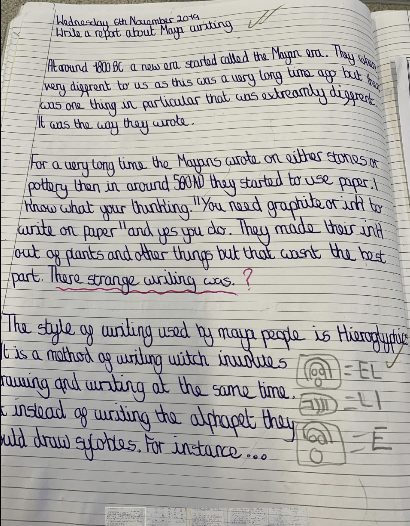 Wednesday 6th November 2019
Write a report about Maya writing
At around 1800 BC a new era started called the Mayan era. They were
very diffrent to us as this was a very long time ago but there
was one thing in particular that was extreamly diffrent
It was the way they wrote.
For a very long time the Mayans wrote on either stones or
pottery then in around 500AD they started to use paper. I
know what your thinking. "You need graphite or ink to
write on paper" and yes you do. They made their ink
out of plants and other things but that wasnt the best
part. There strange writing was. ?
The style of writing used by maya people is Hieroglyphic
It is a method of writing witch involves
drawing and writing at the same time.
instead of writing the alphapet they
would draw For instance...
= EL
= LI
= E